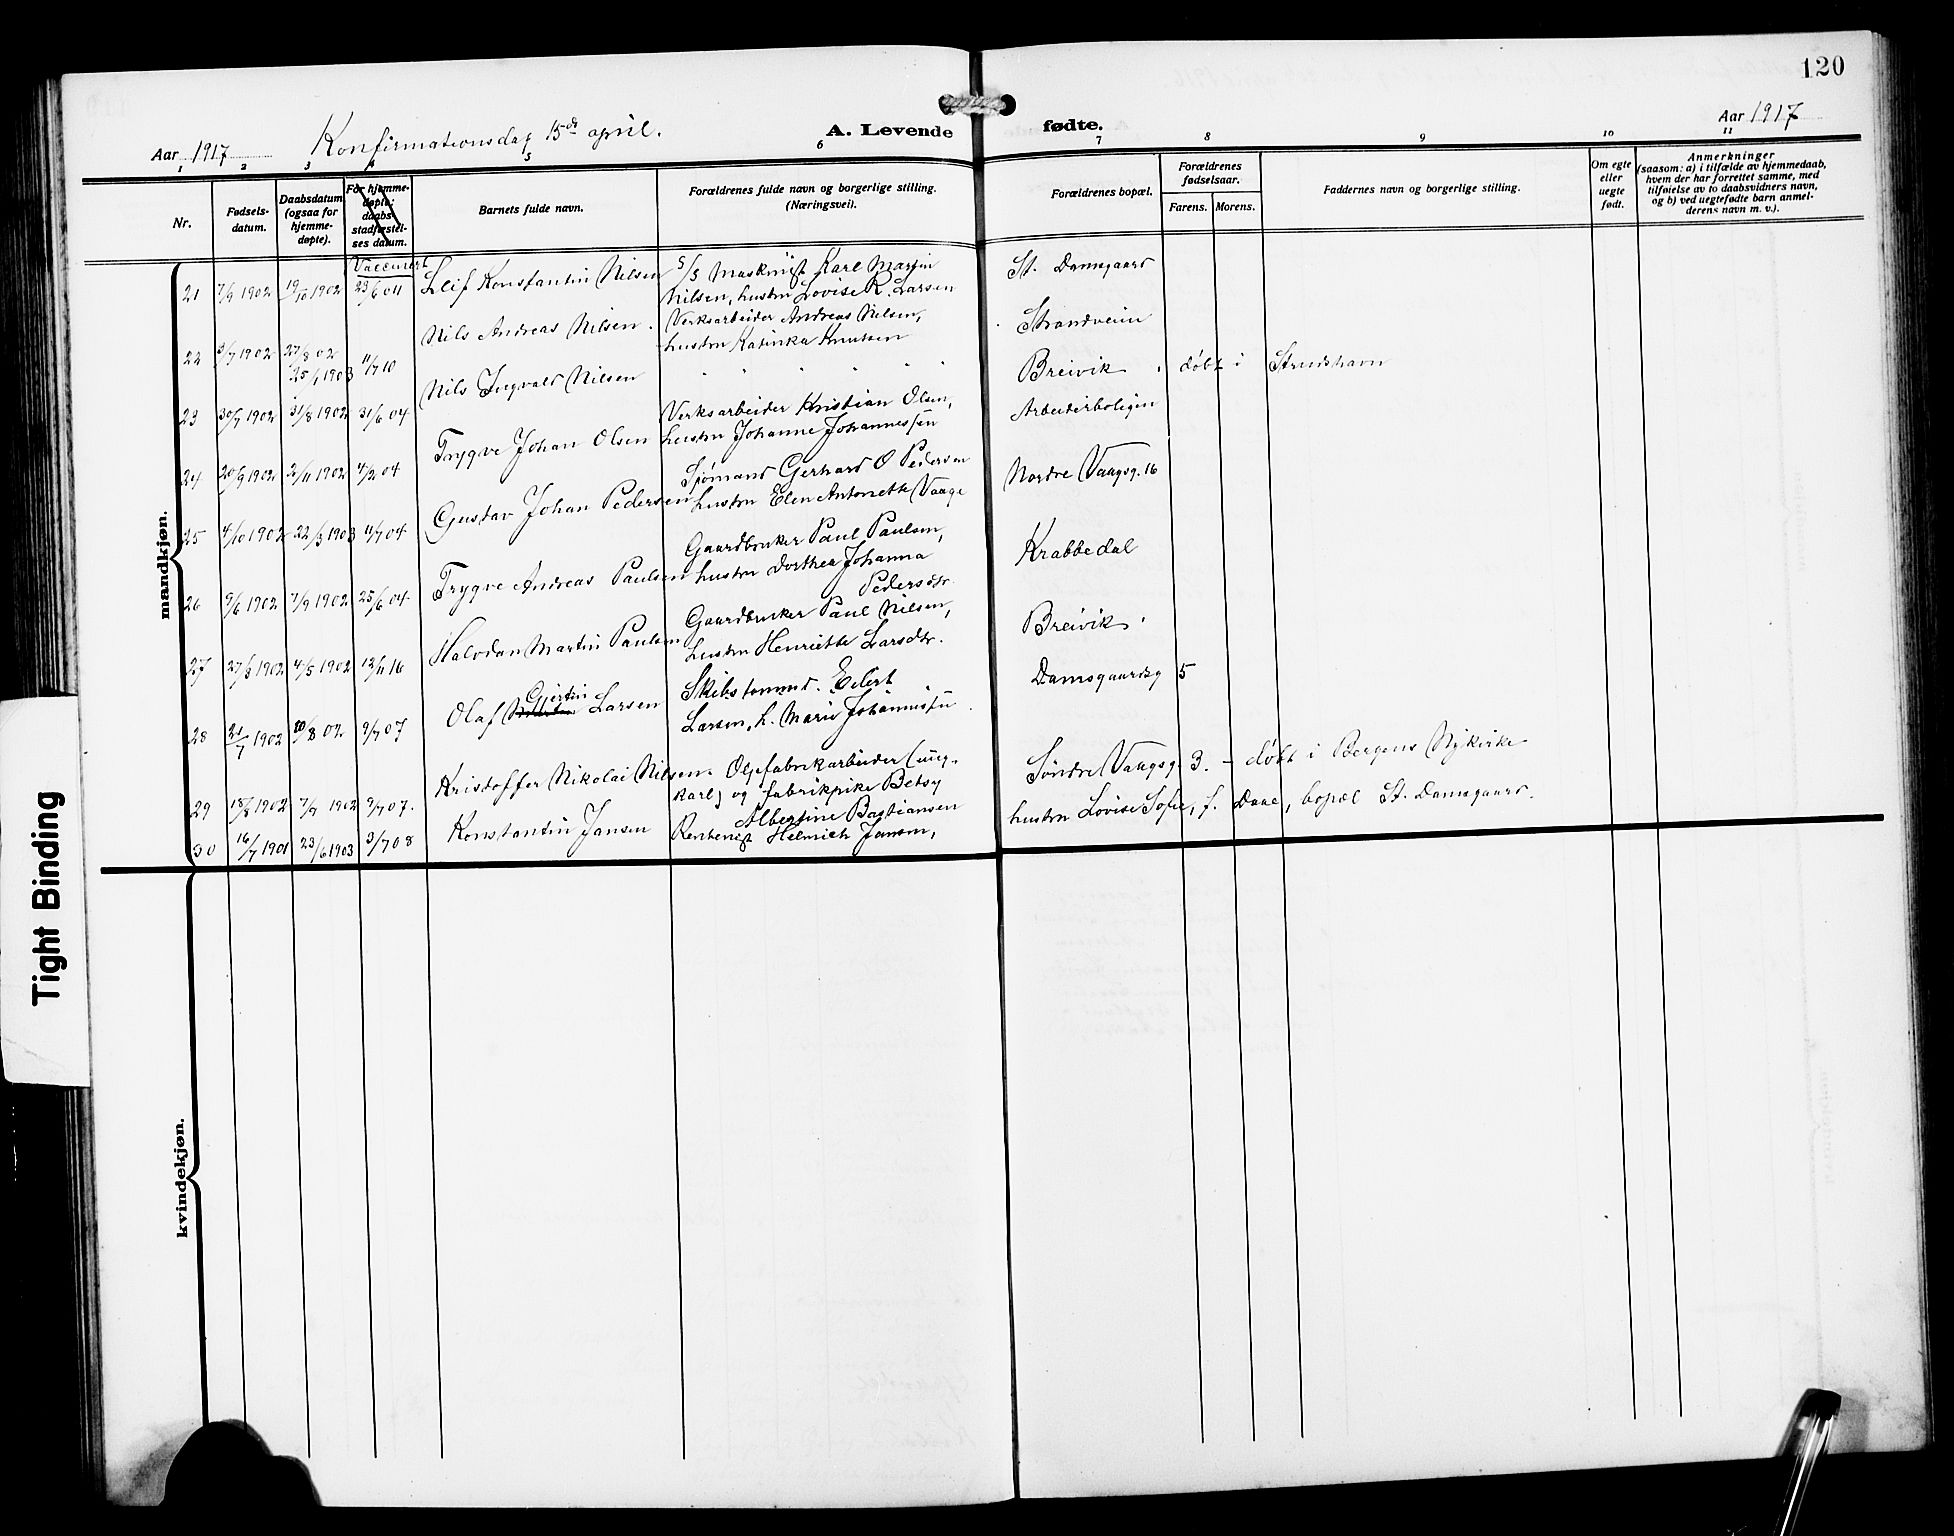 120
Aar 1917
Konfirmationsdag 15de april.
A. Levende fødte.
Aar 1917
1 2 3 4 5 6 7 8 9 10 11
Nr.
Fødsels-
datum.
Daabsdatum
(ogsaa for
hjemme-
døpte).
For hjemme-
døpte:
daabs
stadfæstel-
ses datum.
Vaccinert
Barnets fulde navn.
Forældrenes fulde navn og borgerlige stilling.
(Næringsvei).
Forældrenes bopæl.
Forældrenes
fødselsaar.
Farens. Morens.
Faddernes navn og borgerlige stilling.
Om egte
eller
uegte
født.
Anmerkninger
(saasom: a) i tilfælde av hjemmedaab,
hvem der har forrettet samme, med
tilføielse av to daabsvidners navn,
og b) ved uegtefødte barn anmel-
derens navn m. v.).
mandkjøn.
21 7/9 1902 19/10 1902 23/6 04 Leif Konstantin Nilsen S/S Maskinist Karl Martin St. Damsgaard
Nilsen, hustru Lovise R. Larsen
22 3/7 1902 27/8 02 11/7 10 Nils Andreas Nilsen. Verksarbeider Andreas Nilsen, Strandveien
hustru Katinka Knutsen
25/1 1903 Nils Ingvald Nilsen " " " " " Breivik, døbt i Strudshavn
23 30/7 1902 31/8 1902 31/6 04 Trygve Johan Olsen Verksarbeider Kristian Olsen, Arbeiderboligen
hustru Johanne Johannessen
24 20/9 1902 2/11 1902 4/2 04 Gustav Johan Pedersen Sjømand Gerhard O Pedersen Nordre Vaagsg. 16
hustru Elen Antonette Vaage
25 4/10 1902 22/3 1903 4/7 04 Trygve Andreas Paulsen Gaardbruker Paul Paulsen, Krabbedal
hustru Dorthea Johanna
Pedersdtr.
26 9/6 1902 7/9 1902 25/6 04 Halvdan Martin Paulsen Gaardbruker Paul Nilsen, Breivik.
hustru Henriette Larsdtr.
27 27/3 1902 4/5 1902 12/11 16 Olaf Gjertin Larsen Skibstømmd. Eilert Damsgaardsg 5
Larsen, h. Marie Johannessen
28 21/7 1902 10/8 02 9/7 07 Kristoffer Nikolai Nilsen. Oljefabrikarbeider (ung- Søndre Vaagsg. 3. - døbt i Bergens Nykirke
karl) og fabrikpike Betsy
Albertine Bastiansen
29 18/8 1902 7/9 1902 9/7 07. Konstantin Jansen Rentenist Helmich Jansen, hustru Lovise Sofie, f. Daae, bopæl St. Damsgaard.
30 16/7 1901 23/6 1903 3/7 08
kvindekjøn.
Tight Binding